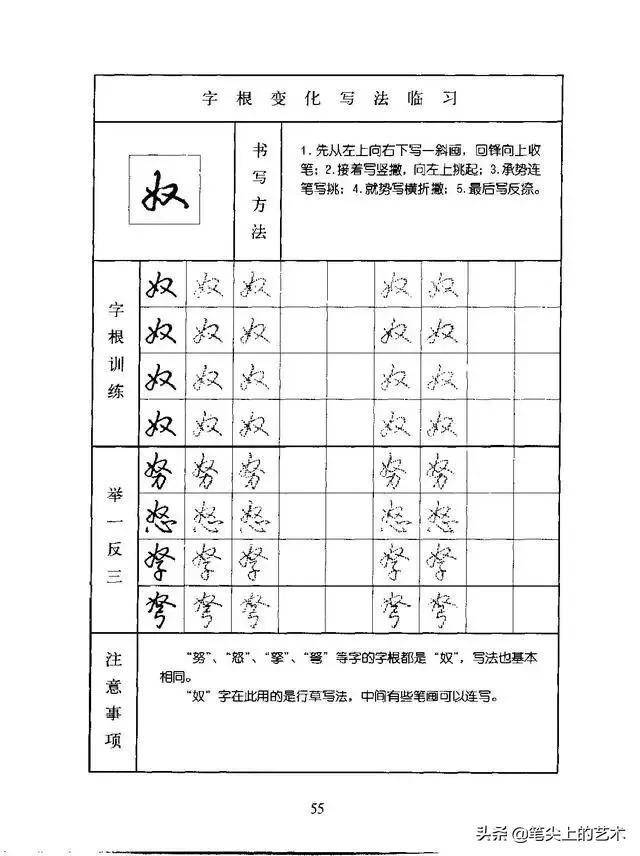 字根变化写法临习
奴
书写方法
1.先从左上向右下写一斜画，回锋向上收
笔；2.接着写竖撇，向左上挑起；3.承势连
笔写挑；4.就势写横折撇；5.最后写反捺。
字根训练
奴 奴 奴 奴 奴
奴 奴 奴 奴 奴
奴 奴 奴 奴 奴
奴 奴 奴 奴 奴
举一反三
努 努 努 努 努
怒 怒 怒 怒 怒
孥 孥 孥 孥 孥
弩 弩 弩 弩 弩
注意事项
“努”、“怒”、“孥”、“弩”等字的字根都是“奴”，写法也基本
相同。
“奴”字在此用的是行草写法，中间有些笔画可以连写。
55
头条@笔尖上的艺术